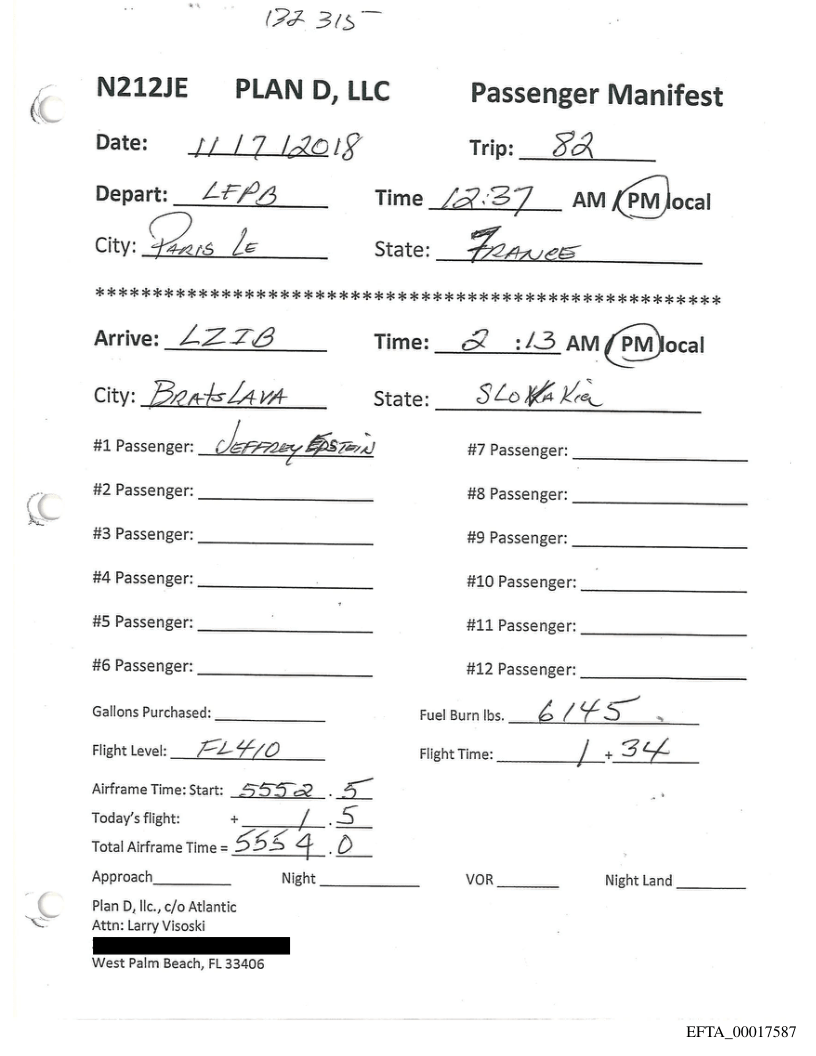 132 315
N212JE PLAN D, LLC Passenger Manifest
Date: 11/7/2018 Trip: 82
Depart: LFPB Time 12:37 AM / PM local
City: PARIS LE State: FRANCE
****************************************************
Arrive: LZIB Time: 2 :13 AM / PM local
City: BRATSLAVA State: SLOVAKia
#1 Passenger: JEFFREY EPSTEIN #7 Passenger:
#2 Passenger: #8 Passenger:
#3 Passenger: #9 Passenger:
#4 Passenger: #10 Passenger:
#5 Passenger: #11 Passenger:
#6 Passenger: #12 Passenger:
Gallons Purchased: Fuel Burn lbs. 6145
Flight Level: FL410 Flight Time: 1 + 34
Airframe Time: Start: 5552 . 5
Today's flight: + 1 . 5
Total Airframe Time = 5554 . 0
Approach Night VOR Night Land
Plan D, llc., c/o Atlantic
Attn: Larry Visoski
West Palm Beach, FL 33406
EFTA_00017587